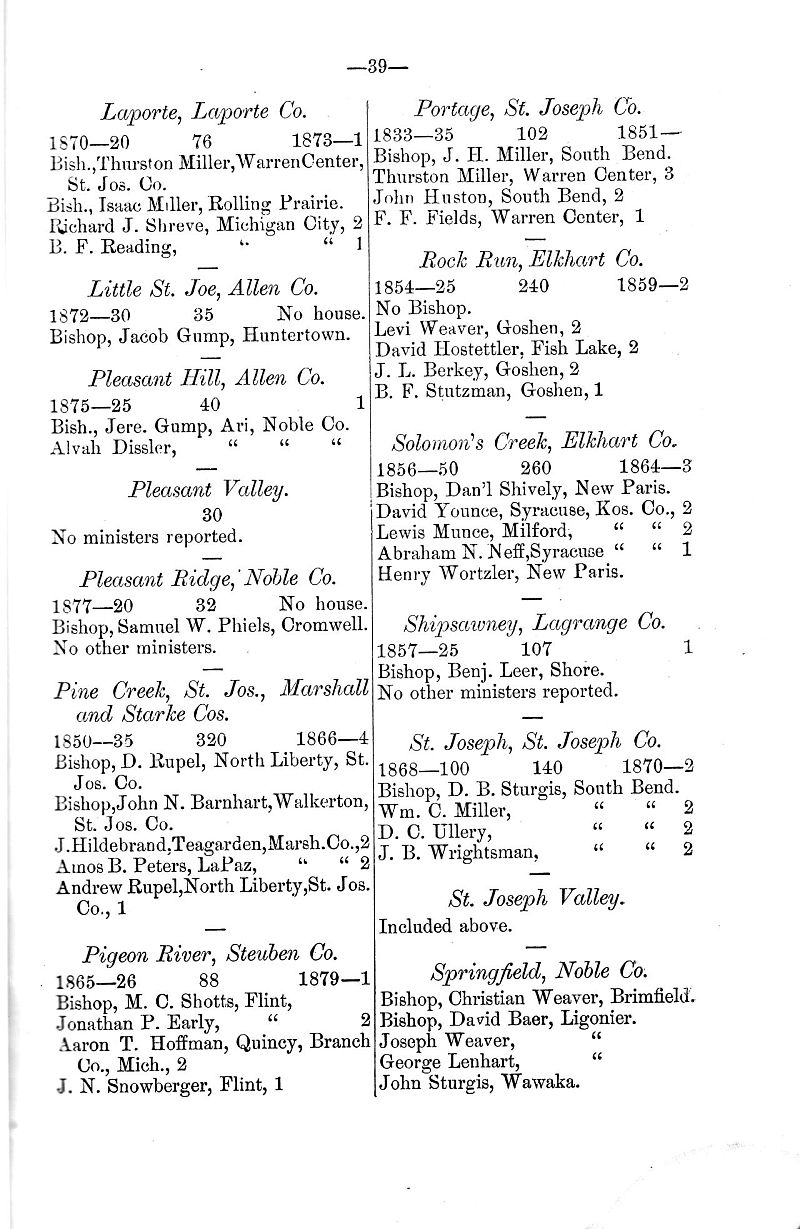 —39—
Laporte, Laporte Co.
1870—20 76 1873—1
Bish., Thurston Miller, Warren Center,
St. Jos. Co.
Bish., Isaac Miller, Rolling Prairie.
Richard J. Shreve, Michigan City, 2
B. F. Reading, “ “ 1
Little St. Joe, Allen Co.
1872—30 35 No house.
Bishop, Jacob Gump, Huntertown.
Pleasant Hill, Allen Co.
1875—25 40 1
Bish., Jere. Gump, Ari, Noble Co.
Alvah Dissler, “ “ “
Pleasant Valley.
30
No ministers reported.
Pleasant Ridge, Noble Co.
1877—20 32 No house.
Bishop, Samuel W. Phiels, Cromwell.
No other ministers.
Pine Creek, St. Jos., Marshall
and Starke Cos.
1850—35 320 1866—4
Bishop, D. Rupel, North Liberty, St.
Jos. Co.
Bishop, John N. Barnhart, Walkerton,
St. Jos. Co.
J. Hildebrand, Teagarden, Marsh. Co., 2
Amos B. Peters, LaPaz, “ “ 2
Andrew Rupel, North Liberty, St. Jos.
Co., 1
Pigeon River, Steuben Co.
1865—26 88 1879—1
Bishop, M. C. Shotts, Flint,
Jonathan P. Early, “ 2
Aaron T. Hoffman, Quincy, Branch
Co., Mich., 2
J. N. Snowberger, Flint, 1
Portage, St. Joseph Co.
1833—35 102 1851—
Bishop, J. H. Miller, South Bend.
Thurston Miller, Warren Center, 3
John Huston, South Bend, 2
F. F. Fields, Warren Center, 1
Rock Run, Elkhart Co.
1854—25 240 1859—2
No Bishop.
Levi Weaver, Goshen, 2
David Hostettler, Fish Lake, 2
J. L. Berkey, Goshen, 2
B. F. Stutzman, Goshen, 1
Solomon's Creek, Elkhart Co.
1856—50 260 1864—3
Bishop, Dan'l Shively, New Paris.
David Younce, Syracuse, Kos. Co., 2
Lewis Munce, Milford, “ “ 2
Abraham N. Neff, Syracuse “ “ 1
Henry Wortzler, New Paris.
Shipsawney, Lagrange Co.
1857—25 107 1
Bishop, Benj. Leer, Shore.
No other ministers reported.
St. Joseph, St. Joseph Co.
1868—100 140 1870—2
Bishop, D. B. Sturgis, South Bend.
Wm. C. Miller, “ “ 2
D. C. Ullery, “ “ 2
J. B. Wrightsman, “ “ 2
St. Joseph Valley.
Included above.
Springfield, Noble Co.
Bishop, Christian Weaver, Brimfield.
Bishop, David Baer, Ligonier.
Joseph Weaver, “
George Lenhart, “
John Sturgis, Wawaka.